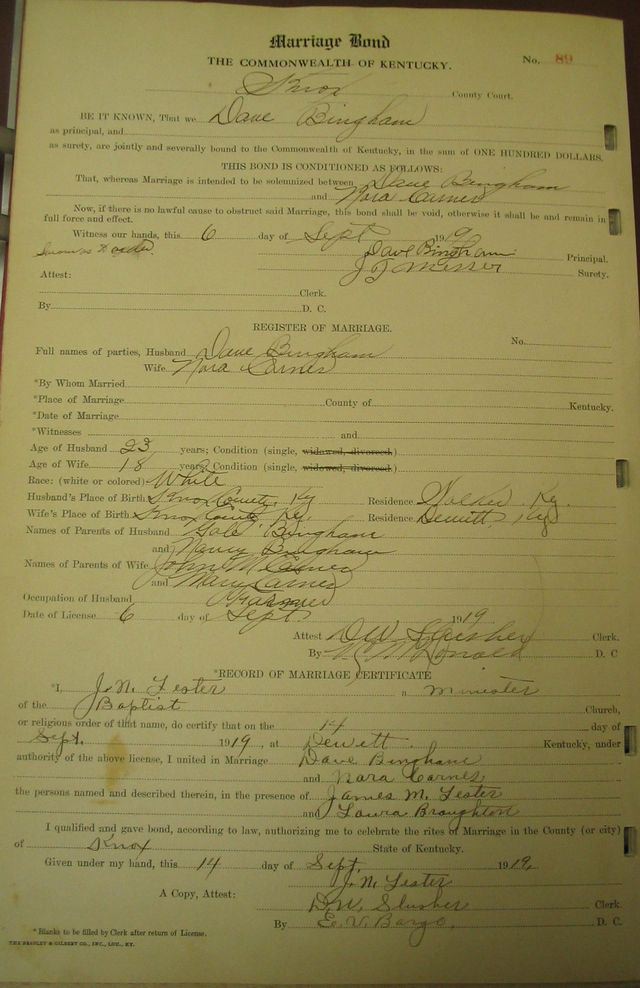 Marriage Bond
THE COMMONWEALTH OF KENTUCKY. No. 89
Knox County Court.
BE IT KNOWN, That we Dave Bingham
as principal, and
as surety, are jointly and severally bound to the Commonwealth of Kentucky, in the sum of ONE HUNDRED DOLLARS.
THIS BOND IS CONDITIONED AS FOLLOWS:
That, whereas Marriage is intended to be solemnized between Dave Bingham
and Nora Carnes
Now, if there is no lawful cause to obstruct said Marriage, this bond shall be void, otherwise it shall be and remain in
full force and effect.
Witness our hands, this 6 day of Sept 1919
Dave Bingham Principal.
J T Messer Surety.
Attest:
Clerk.
By D. C.
REGISTER OF MARRIAGE.
No.
Full names of parties, Husband Dave Bingham
Wife Nora Carnes
*By Whom Married
*Place of Marriage County of Kentucky.
*Date of Marriage
*Witnesses and
Age of Husband 23 years; Condition (single, widowed, divorced.)
Age of Wife 18 years; Condition (single, widowed, divorced.)
Race: (white or colored) White
Husband's Place of Birth Knox County, Ky Residence Walker Ky.
Wife's Place of Birth Knox County, Ky. Residence Dewitt, Ky
Names of Parents of Husband Bingham
and Nancy Bingham
Names of Parents of Wife John M Carnes
and Mary Carnes
Occupation of Husband Farmer
Date of License 6 day of Sept 1919
Attest D W Slusher Clerk.
By McDonald D. C
*RECORD OF MARRIAGE CERTIFICATE
*I, J. N. Lester a minister
of the Baptist Church,
or religious order of that name, do certify that on the 14 day of
Sept. 1919, at Dewitt. Kentucky, under
authority of the above license, I united in Marriage Dave Bingham
and Nora Carnes
the persons named and described therein, in the presence of James M. Lester
and Laura Broughton
I qualified and gave bond, according to law, authorizing me to celebrate the rites of Marriage in the County (or city)
of Knox State of Kentucky.
Given under my hand, this 14 day of Sept, 1919,
J. N. Lester
A Copy, Attest: D. W. Slusher Clerk
By E. V. Bargo, D. C.
* Blanks to be filled by Clerk after return of License.
THE BRADLEY & GILBERT CO., INC., LOU., KY.